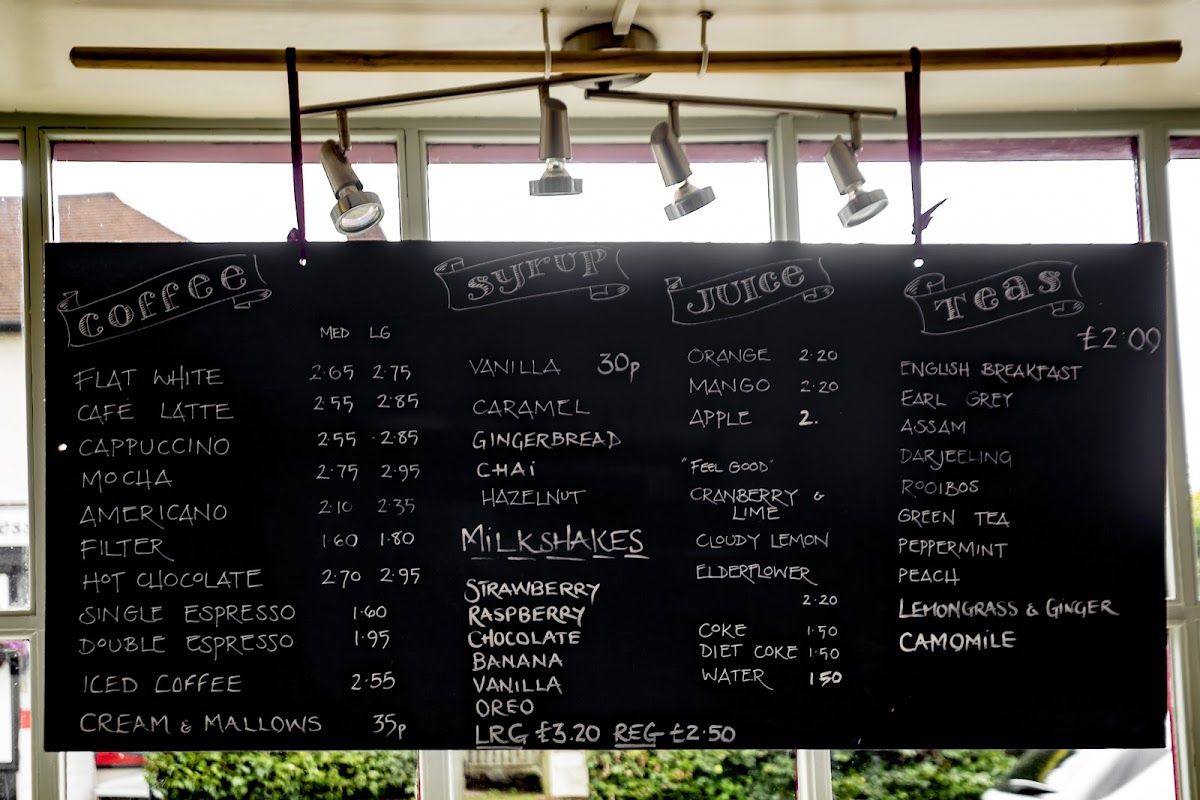 Coffee
MED LG
FLAT WHITE 2.65 2.75
CAFÉ LATTE 2.55 2.85
CAPPUCCINO 2.55 2.85
MOCHA 2.75 2.95
AMERICANO 2.10 2.35
FILTER 1.60 1.80
HOT CHOCOLATE 2.70 2.95
SINGLE ESPRESSO 1.60
DOUBLE ESPRESSO 1.95
ICED COFFEE 2.55
CREAM & MALLOWS 35p
Syrup
VANILLA 30p
CARAMEL
GINGERBREAD
CHAi
HAZELNUT
MiLKSHAKES
STRAWBERRY
RASPBERRY
CHOCOLATE
BANANA
VANILLA
OREO
LRG £3.20 REG £2.50
JUICE
ORANGE 2.20
MANGO 2.20
APPLE 2.
"FEEL GOOD"
CRANBERRY &
LIME
CLOUDY LEMON
ELDERFLOWER
2.20
COKE 1.50
DIET COKE 1.50
WATER 150
Teas
£2.09
ENGLISH BREAKFAST
EARL GREY
ASSAM
DARJEELING
ROOIBOS
GREEN TEA
PEPPERMINT
PEACH
LEMONGRASS & GINGER
CAMOMILE